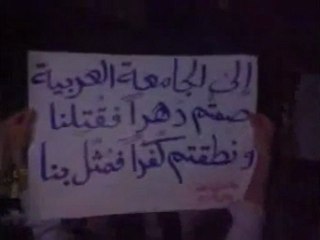 إلى الجامعة العربية
صمتم دهراً فقتلنا
ونطقتم كفراً فمثل بنا